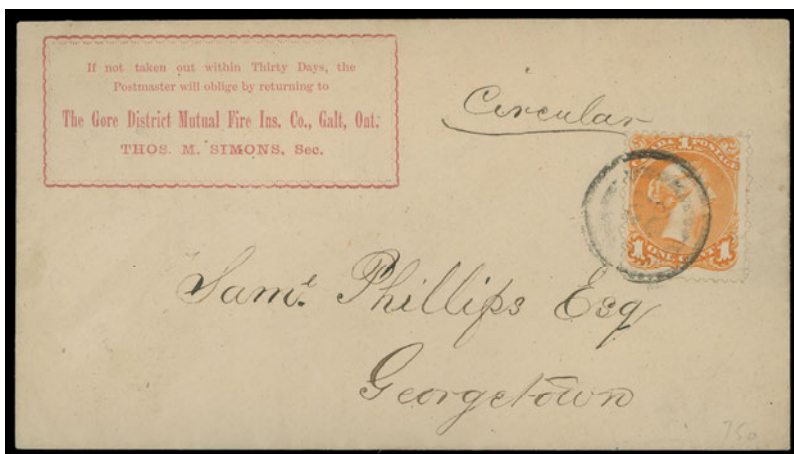 If not taken out within Thirty Days, the
Postmaster will oblige by returning to
The Gore District Mutual Fire Ins. Co., Galt, Ont.
THOS. M. SIMONS, Sec.
Circular
1
POSTAGE
1 ONE CENT 1
Saml. Phillips Esq
Georgetown
750